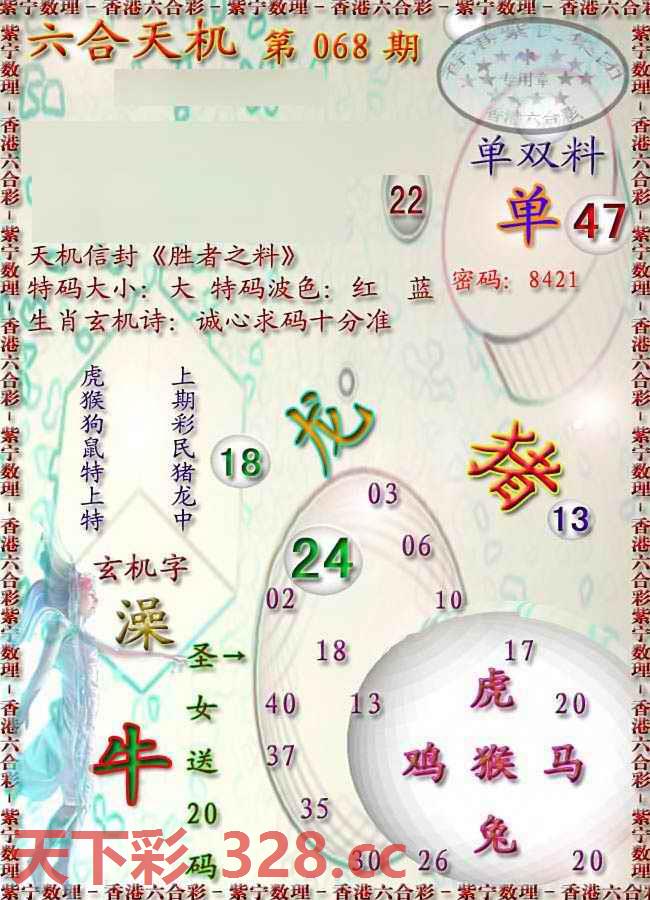 紫宁数理－香港六合彩－紫宁数理－香港六合彩－紫宁数理－香港六合彩
六合天机 第 068 期
专用章
香港六合彩
单双料
单 47
22
天机信封《胜者之料》
特码大小：大 特码波色：红 蓝
密码：8421
生肖玄机诗：诚心求码十分准
上期彩民猪龙中
虎猴狗鼠特上特
龙
猪
18
13
03
24
06
02
10
玄机字
澡
圣→
女
送
20
码
牛
18
17
虎
40
13
20
37
鸡 猴 马
35
兔
30
26
20
天下彩.328.cc
紫宁数理－香港六合彩－紫宁数理－香港六合彩－紫宁数理－香港六合彩